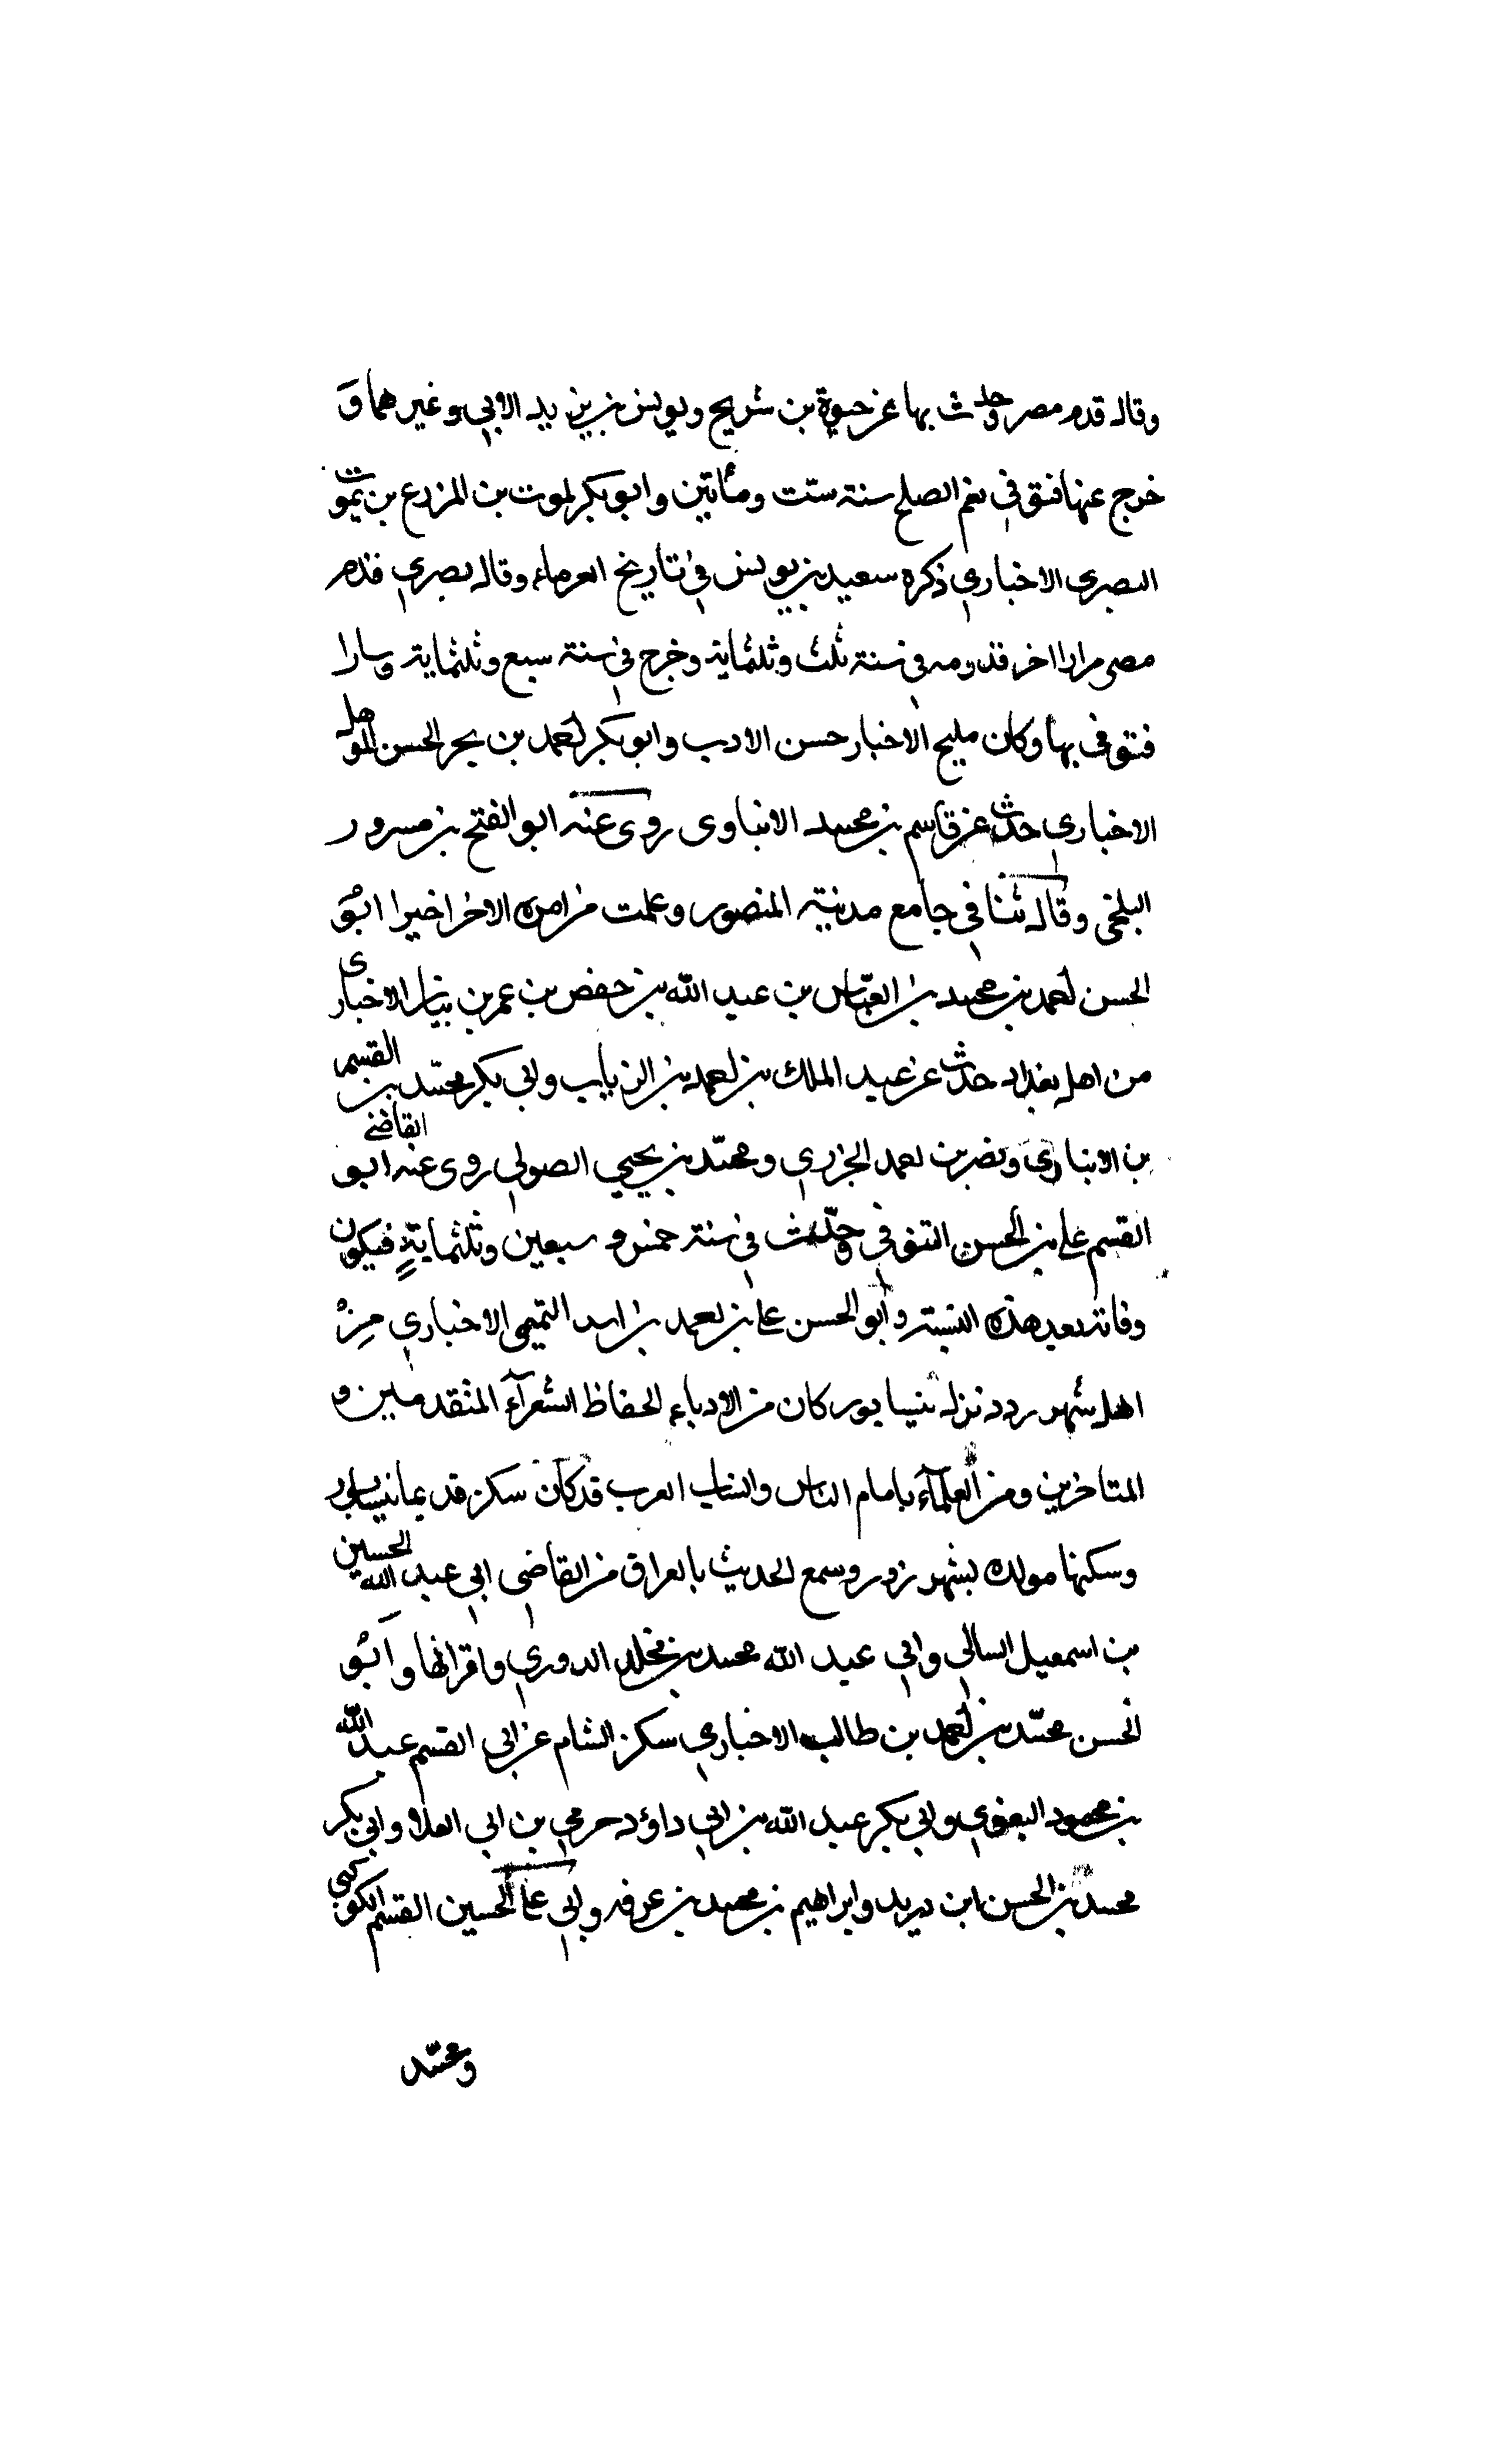 وقال قدم مصر وحدث بها عن حيوة بن شريح ويونس بن يزيد الايلي وغيرهما و
خرج عنها فتوفى بفم الصلح سنة ست ومأتين وابو بكر يموت بن المزرع بن يموت
البصرى الاخباري ذكره سعيد بن يونس في تاريخ الغرباء وقال بصري قدم
مصر مرارا اخر قدومه في سنة ثلث وثلثماية وخرج في سنة سبع وثلثماية وسارا
فتوفى بها وكان مليح الاخبار حسن الادب وابو بكر احمد بن بحر الحسن المؤ
الاخباري حدث عن قاسم بن محمد الانباوى روى عنه ابو الفتح بن مسرور
البلخى وقال ثنا في جامع مدينة المنصور وعلمت من امره الاخر اخيرا ابو
الحسن احمد بن محمد بن العباس بن عبد الله بن حفص بن عمر بن بيان الاخبارى
من اهل بغداد حدث عن عبد الملك بن احمد بن الزيات وابي بكر محمد بن القسم
بن الانباري ونصر بن احمد الخزري ومحمد بن يحيى الصولي روى عنه ابو القاضي
القسم علي بن الحسن التنوخي وحدث في سنة خمس و سبعين وثلثماية فيكون
وفاته بعد هذه السنة وابو الحسن على بن احمد بن اسد التميمى الاخباري من
اهل شهر ردد نزل نيسابور كان من الادباء الحفاظ الشعرآء المتقدمين و
المتاخرين ومن العلمآء بامام الناس وانساب العرب قد كان سكن قديما نيسابور
وسكنها مولده بشهر زور وسمع الحديث بالعراق من القاضى ابي عبد الله الحسين
بن اسمعيل السالي وابي عبد الله محمد بن مخلد الدوري واقرانها وابو
الحسن محمد بن احمد بن طالب الاخباري سكن الشام عن ابي القسم عبد الله
بن محمود البغوي وابي بكر عبد الله بن ابي داؤد حرمي بن ابي العلا وابي بكر
محمد بن الحسن ابن دريد وابراهيم بن محمد بن عرفه وابي علي الحسين القسم الكوكبي
ومحمد